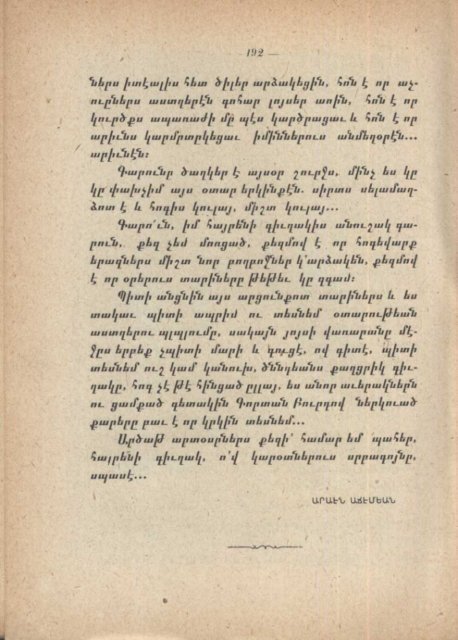 192 —
ներս իտէալիս հետ ծիլեր արձակեցին, հոն է որ աչ-
ուըներս աստղերէն գոհար լոյսեր առին, հոն է որ
կուրծքս ապառաժի մը պէս կարծրացաւ և հոն է որ
արիւնս կարմրտրկեցաւ իմիններուս անմեղօրէն...
արիւնէն։
Գարունը ծաղկեր է այսօր շուրջս, մինչ ես կը
կը փախչիմ այս օտար երկինքէն. սիրտս սեւամաղ-
ձոտ է և հոգիս կուլայ, միշտ կուլայ...
Գարո՛ւն, իմ հայրենի գիւղակիս անուշակ գա-
րուն. քեզ չեմ մոռցած, քեզմով է որ հոգեվարք
երազներս միշտ նոր բողբոջներ կ՚արձակեն, քեզմով
է որ օրերուս տարիները թեթեւ կը զգամ։
Պիտի անցնին այս արցունքոտ տարիներս և ես
տակաւ պիտի ապրիմ ու տեսնեմ օտարութեան
աստղերու պլպլումը, սակայն յոյսի վառարանը մէ-
ջըս երբեք չպիտի մարի և գուցէ, ով գիտէ, պիտի
տեսնեմ ուշ կամ կանուխ, ծննդեանս քաղցրիկ գիւ-
ղակը, հոգ չէ թէ հինցած ըլլայ, ես անոր աւերակներն
ու ցամքած գետակին Գորտան Բուրդով ներկուած
քարերը բաւ է որ կրկին տեսնեմ...
Արծաթ արտօսրներս քեզի՛ համար եմ պահեր,
հայրենի գիւղակ, ո՛վ կարօտներուս սրբագոյնը,
սպասէ...
ԱՐԱԷՆ ԱՃԷՄԵԱՆ